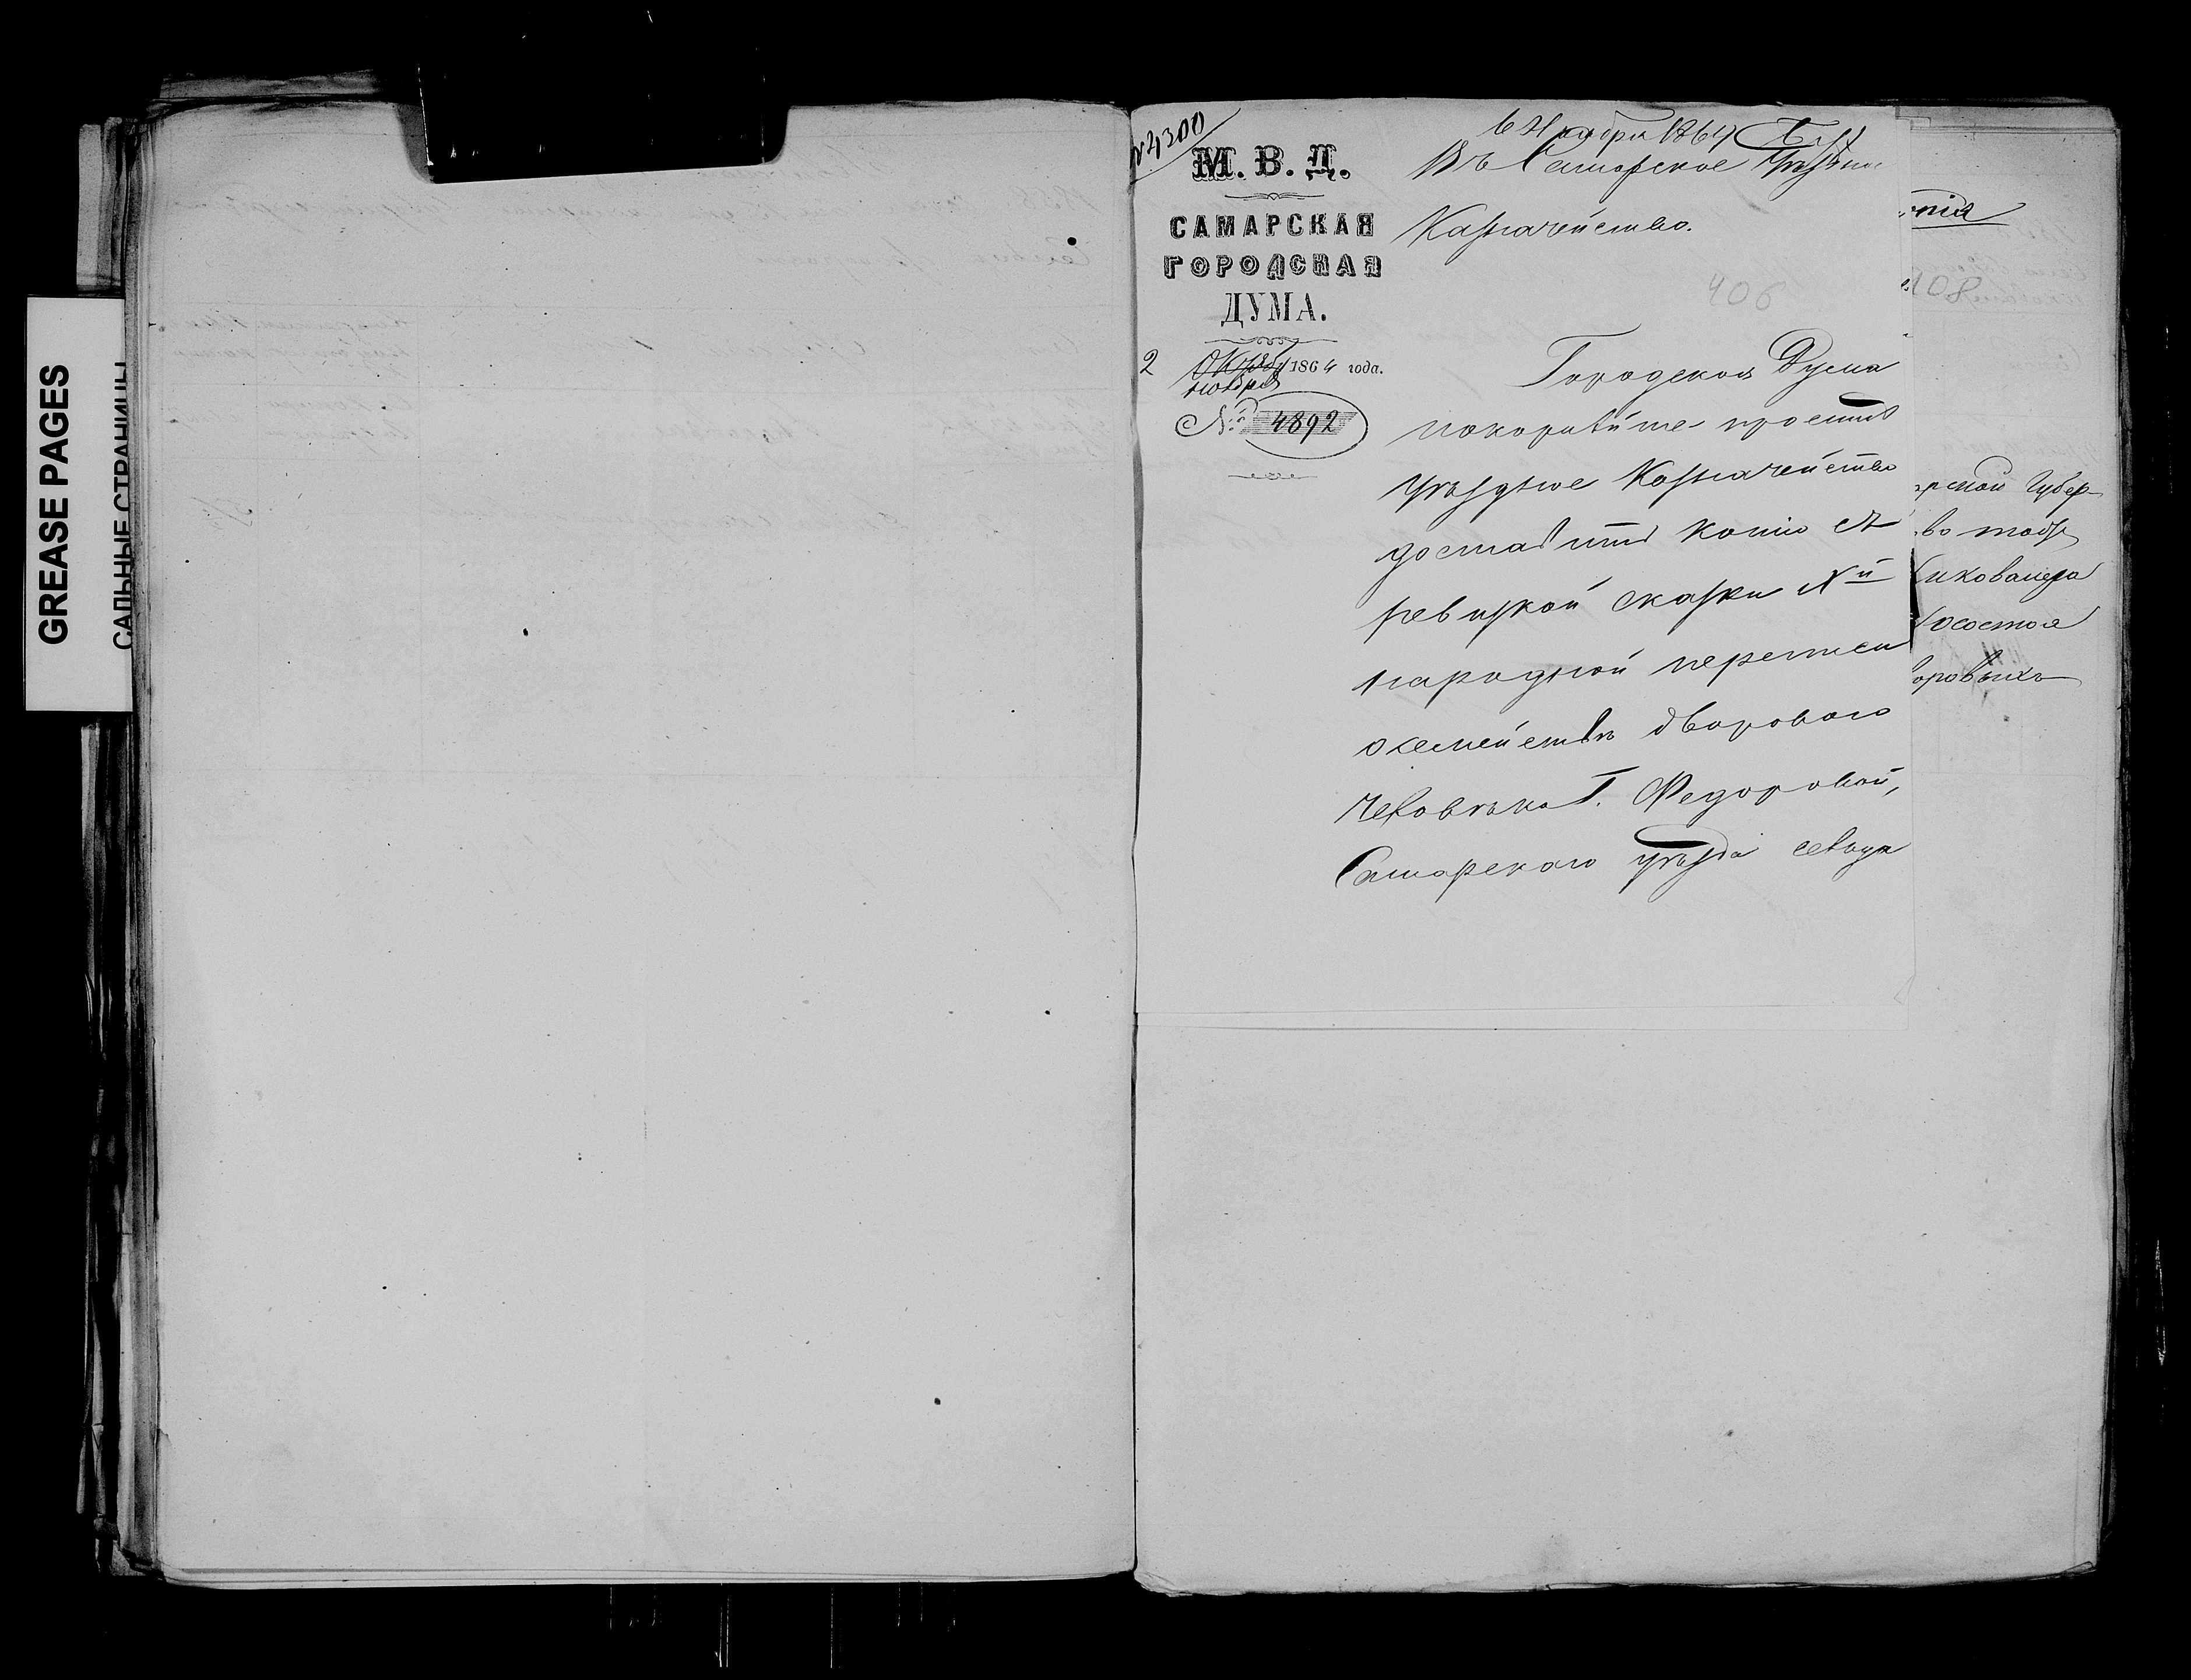 GREASE PAGES
САЛЬНЫЕ СТРАНИЦЫ
№ 4300
6 Ноября 1864
М. В. Д.
САМАРСКАЯ
ГОРОДСКАЯ
ДУМА.
2 ноября 1864 года.
№ 4892
Въ Самарское Уѣздное
Казначейство.
406
Городская Дума
покорнѣйше проситъ
уѣздное Казначейство
доставить копію съ
ревизкой сказки Xй
народной переписи
о семействѣ двороваго
человѣка Г. Федоровой,
Самарскаго уѣзда сельца
108
рской Губер-